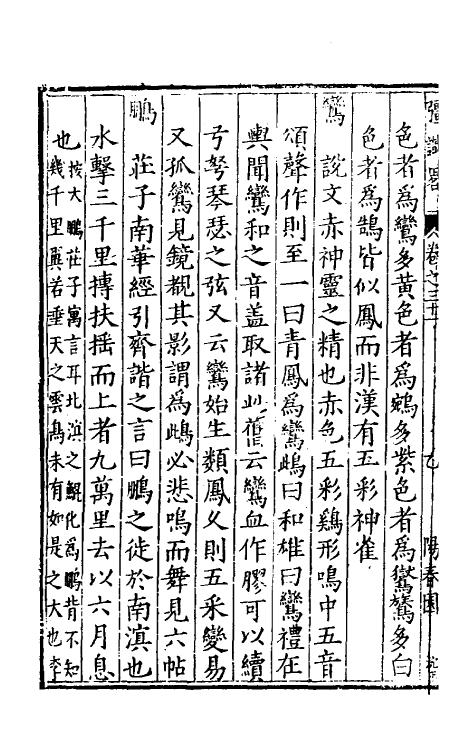 色者為鸞多黃色者為鵷多紫色者為鸑鷟多白
色者為鵠皆似鳳而非漢有五彩神雀
鸞 說文赤神靈之精也赤色五彩鷄形鳴中五音
頌聲作則至一曰青鳳為鸞鴟曰和雄曰鸞禮在
輿聞鸞和之音盖取諸此舊云鸞血作膠可以續
弓弩琴瑟之弦又云鸞始生類鳳久則五采變易
又孤鸞見鏡覩其影謂為鴟必悲鳴而舞見六帖
鵬 莊子南華經引齊諧之言曰鵬之徙於南溟也
水擊三千里摶扶揺而上者九萬里去以六月息
也按大鵬莊子寓言耳北溟之鯤化為鵬背不知
幾千里翼若垂天之雲鳥未有如是之大也李
卷之三十
陽春園